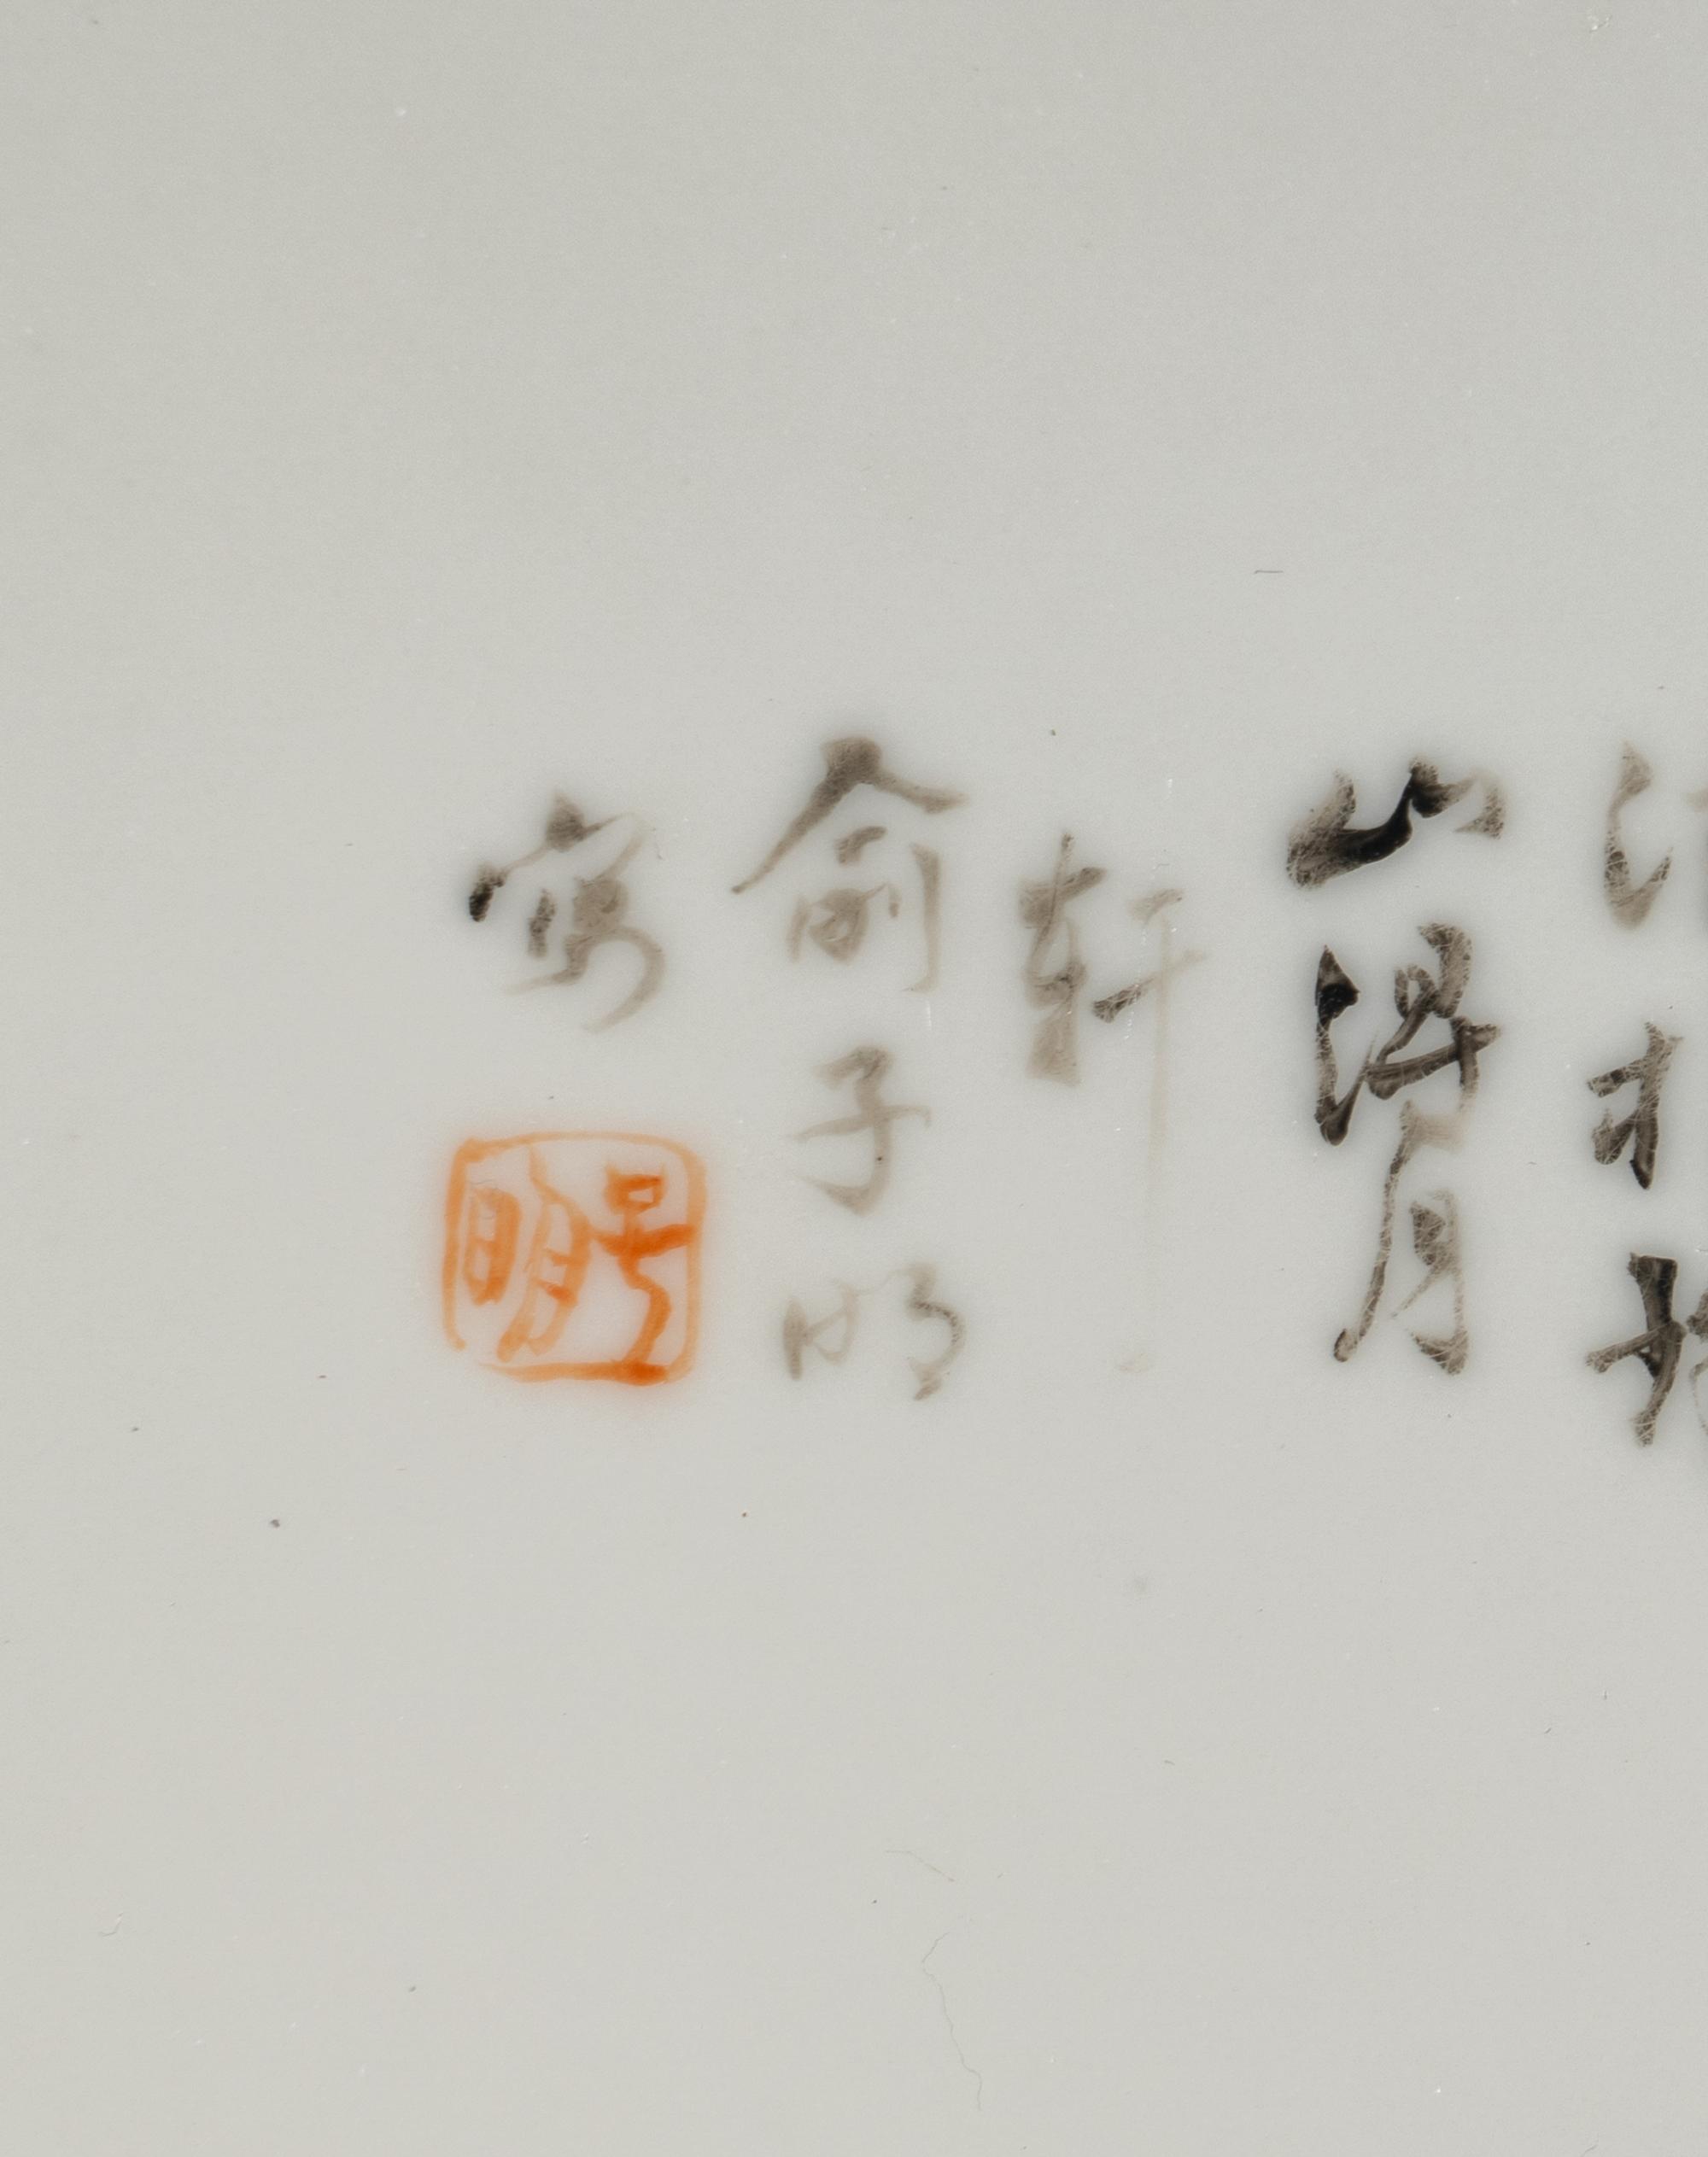 山得月
軒
俞子明
寫
子明